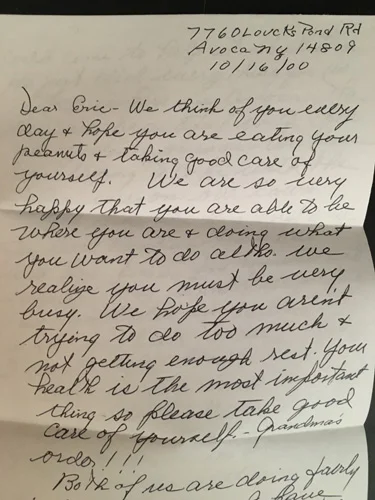 7760 Loucks Pond Rd
Avoca ny 14809
10/16/00
Dear Eric - We think of you every
day & hope you are eating your
peanuts & taking good care of
yourself. We are so very
happy that you are able to be
where you are & doing what
you want to do altho. we
realize you must be very
busy. We hope you aren't
trying to do too much &
not getting enough rest. Your
health is the most important
thing so please take good
care of yourself - Grandma's
order!!!
Both of us are doing fairly
have